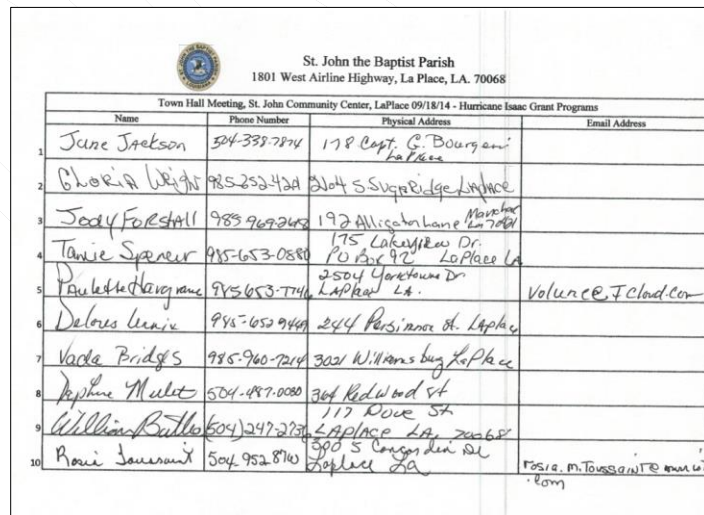 St. John the Baptist Parish
1801 West Airline Highway, La Place, LA. 70068
Town Hall Meeting, St. John Community Center, LaPlace 09/18/14 - Hurricane Isaac Grant Programs
Name Phone Number Physical Address Email Address
1 June Jackson 504-338-7874 178 Capt. G. Bourgeois
LaPlace
2 GLORIA Wright 985-652-4211 2104 S SugaRidge LaPlace
3 Jody FORSHALL 985 969-2618 192 Alligator Lane Manchac
La
4 Tamie Spencer 985-653-0880 175 Lakeview Dr.
PO Box 92 LaPlace LA
5 Paulette Hargrave 985 653-7746 2504 Yorktowne Dr.
LAPlace LA. volunce@Icloud.com
6 Delores 985-652 9449 244 Persimmon St. LAplace
7 Vada Bridges 985-960-7214 3021 Williamsburg LaPlace
8 Daphne 504-487-0080 364 Redwood St
9 William (504) 247-2736 117 Dove St
LAPlACE LA, 70068
10 Rosia Toussaint 504 952 8760 300 S Concordia
Laplace La
rosia.m.Toussaint@
.com